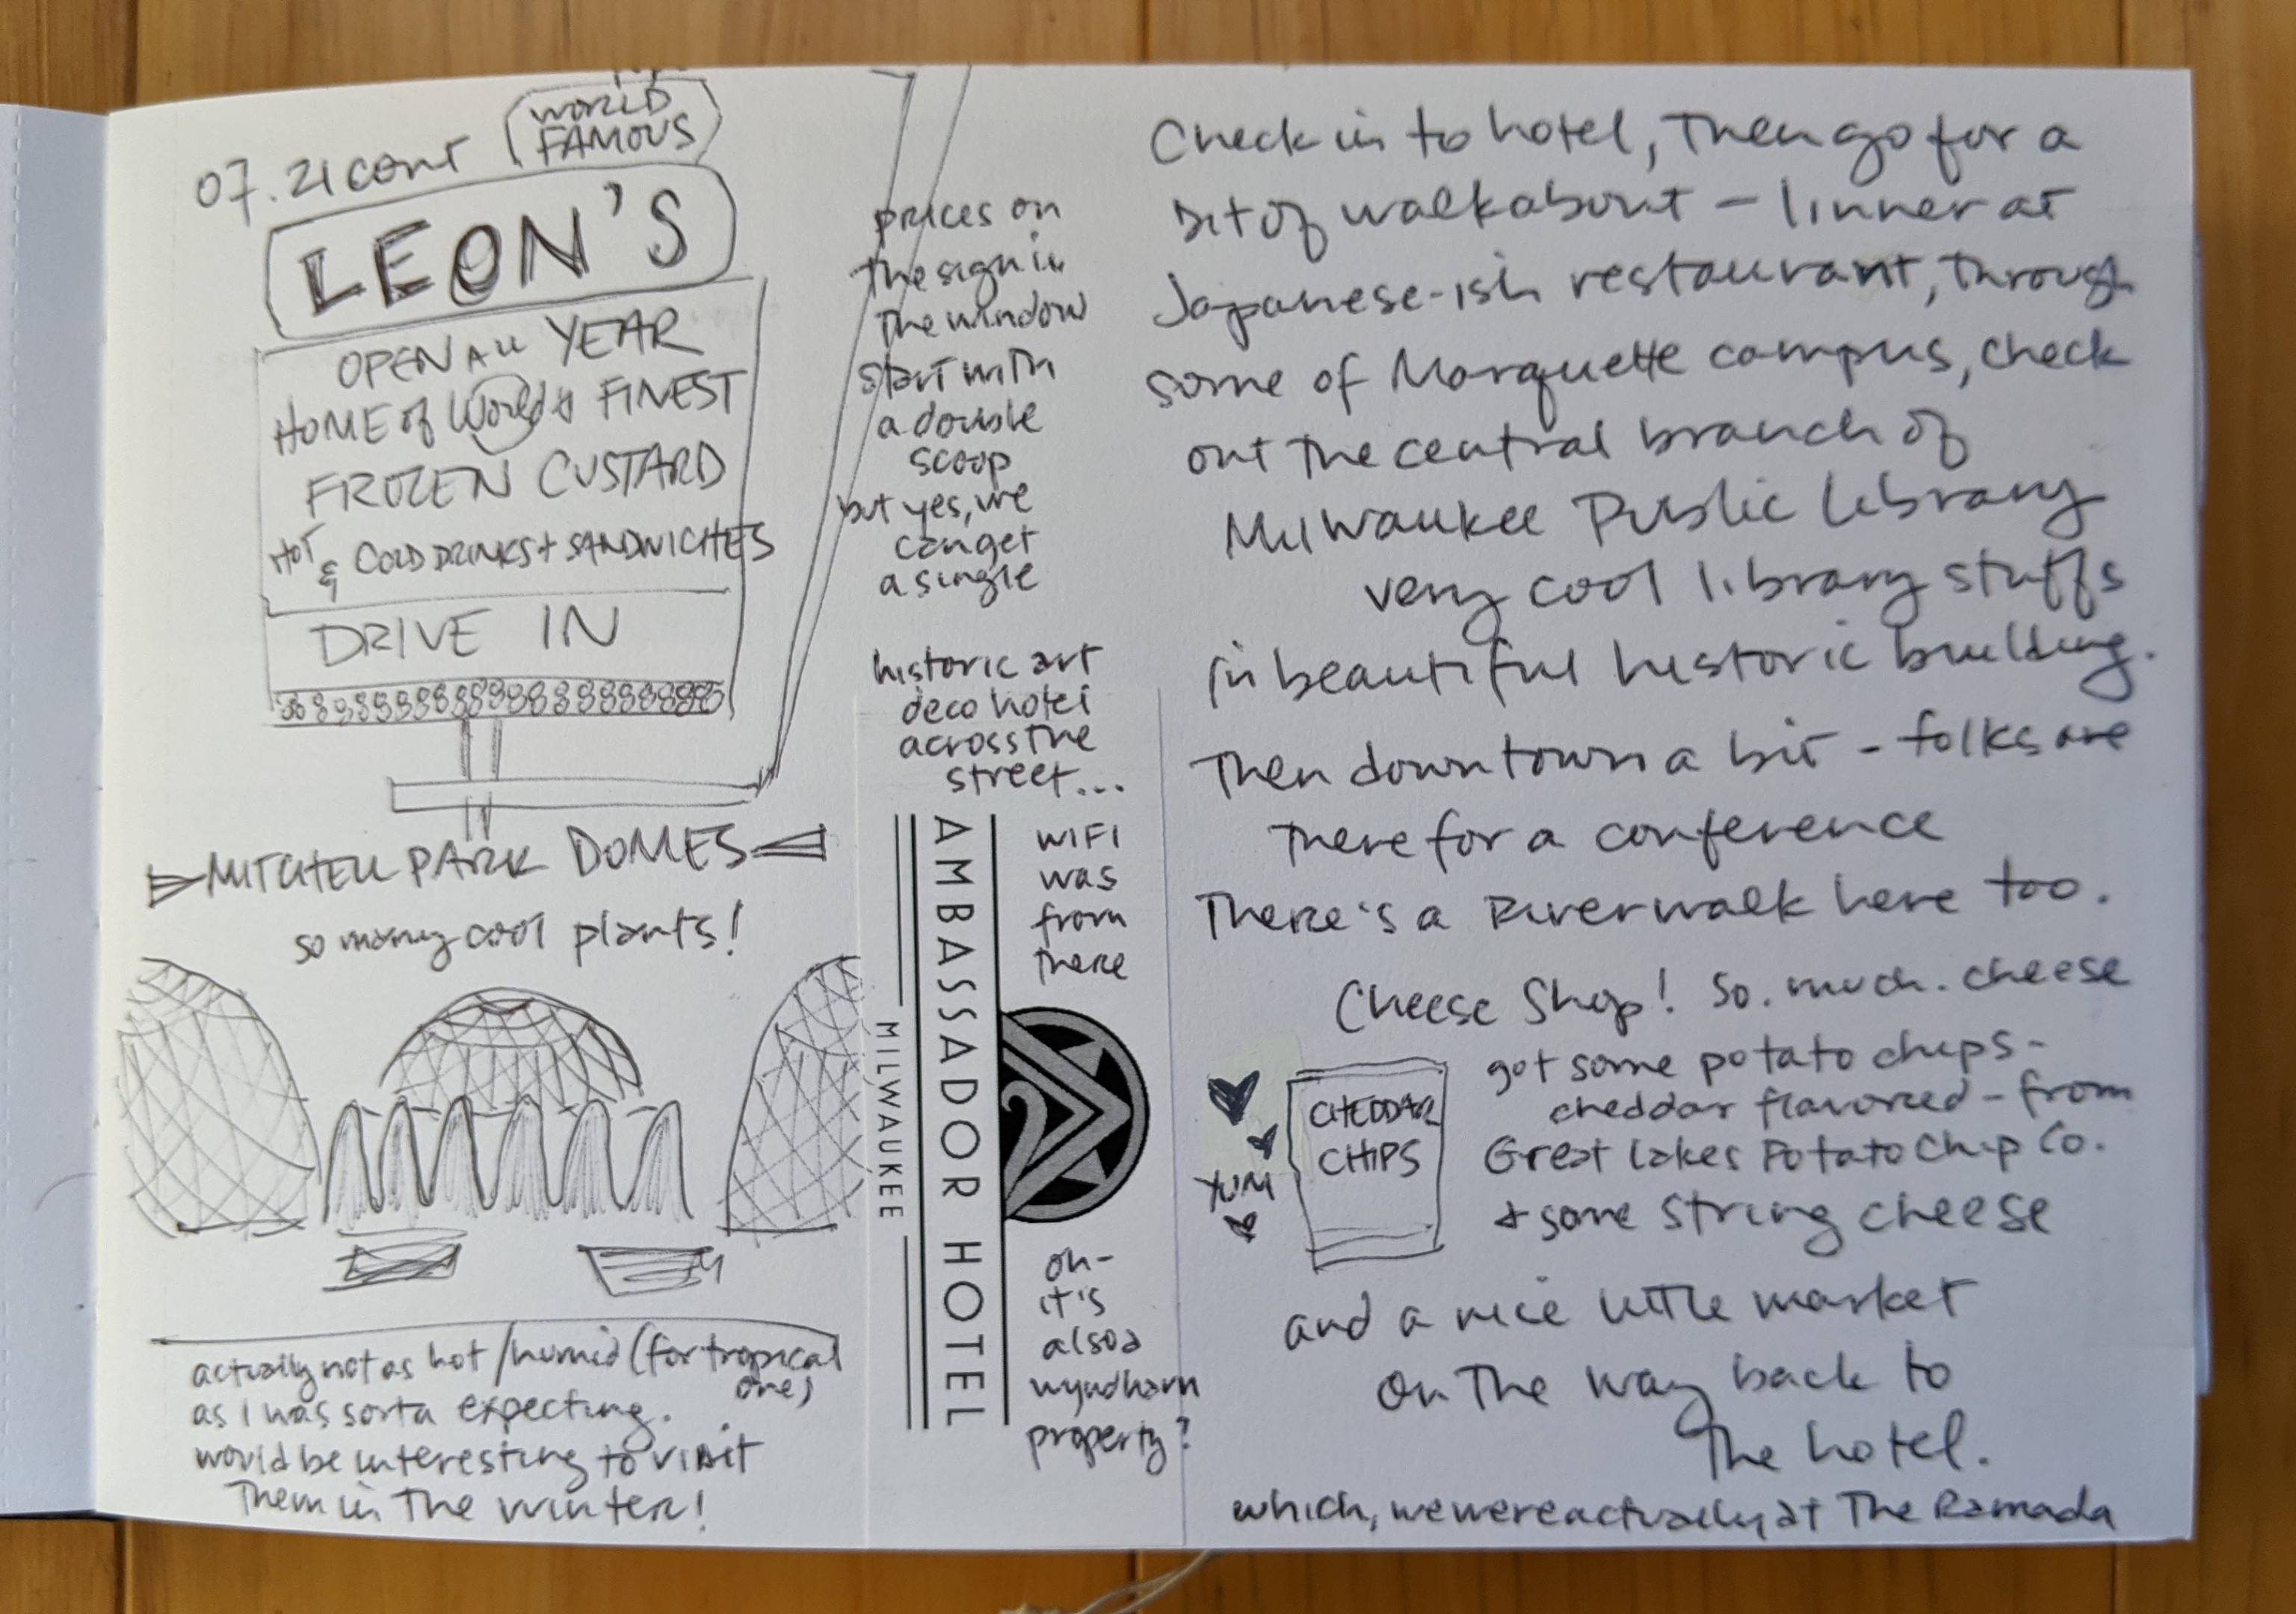 07.21 cont
WORLD
FAMOUS
LEON'S
OPEN ALL YEAR
HOME of World's FINEST
FROZEN CUSTARD
HOT & COLD DRINKS + SANDWICHES
DRIVE IN
MITCHELL PARK DOMES
so many cool plants!
actually not as hot/humid (for tropical
one)
as I was sorta expecting.
would be interesting to visit
Them in The winter!
prices on
the sign in
The window
start with
a double
scoop
but yes, we
can get
a single
historic art
deco hotel
across the
street...
AMBASSADOR HOTEL
MILWAUKEE
WIFI
was
from
there
oh-
it's
also a
wyndham
property?
Check in to hotel, Then go for a
bit of walkabout - linner at
Japanese-ish restaurant, through
some of Marquette campus, check
out the central branch of
Milwaukee Public Library
very cool library stuffs
in beautiful historic building.
Then downtown a bit - folks are
There for a conference
There's a Riverwalk here too.
Cheese Shop! So. much. cheese
got some potato chips-
cheddar flavored - from
Great Lakes Potato Chip Co.
+ some string cheese
CHEDDAR
CHIPS
YUM
and a nice little market
on The way back to
The hotel.
which, we were actually at The Ramada